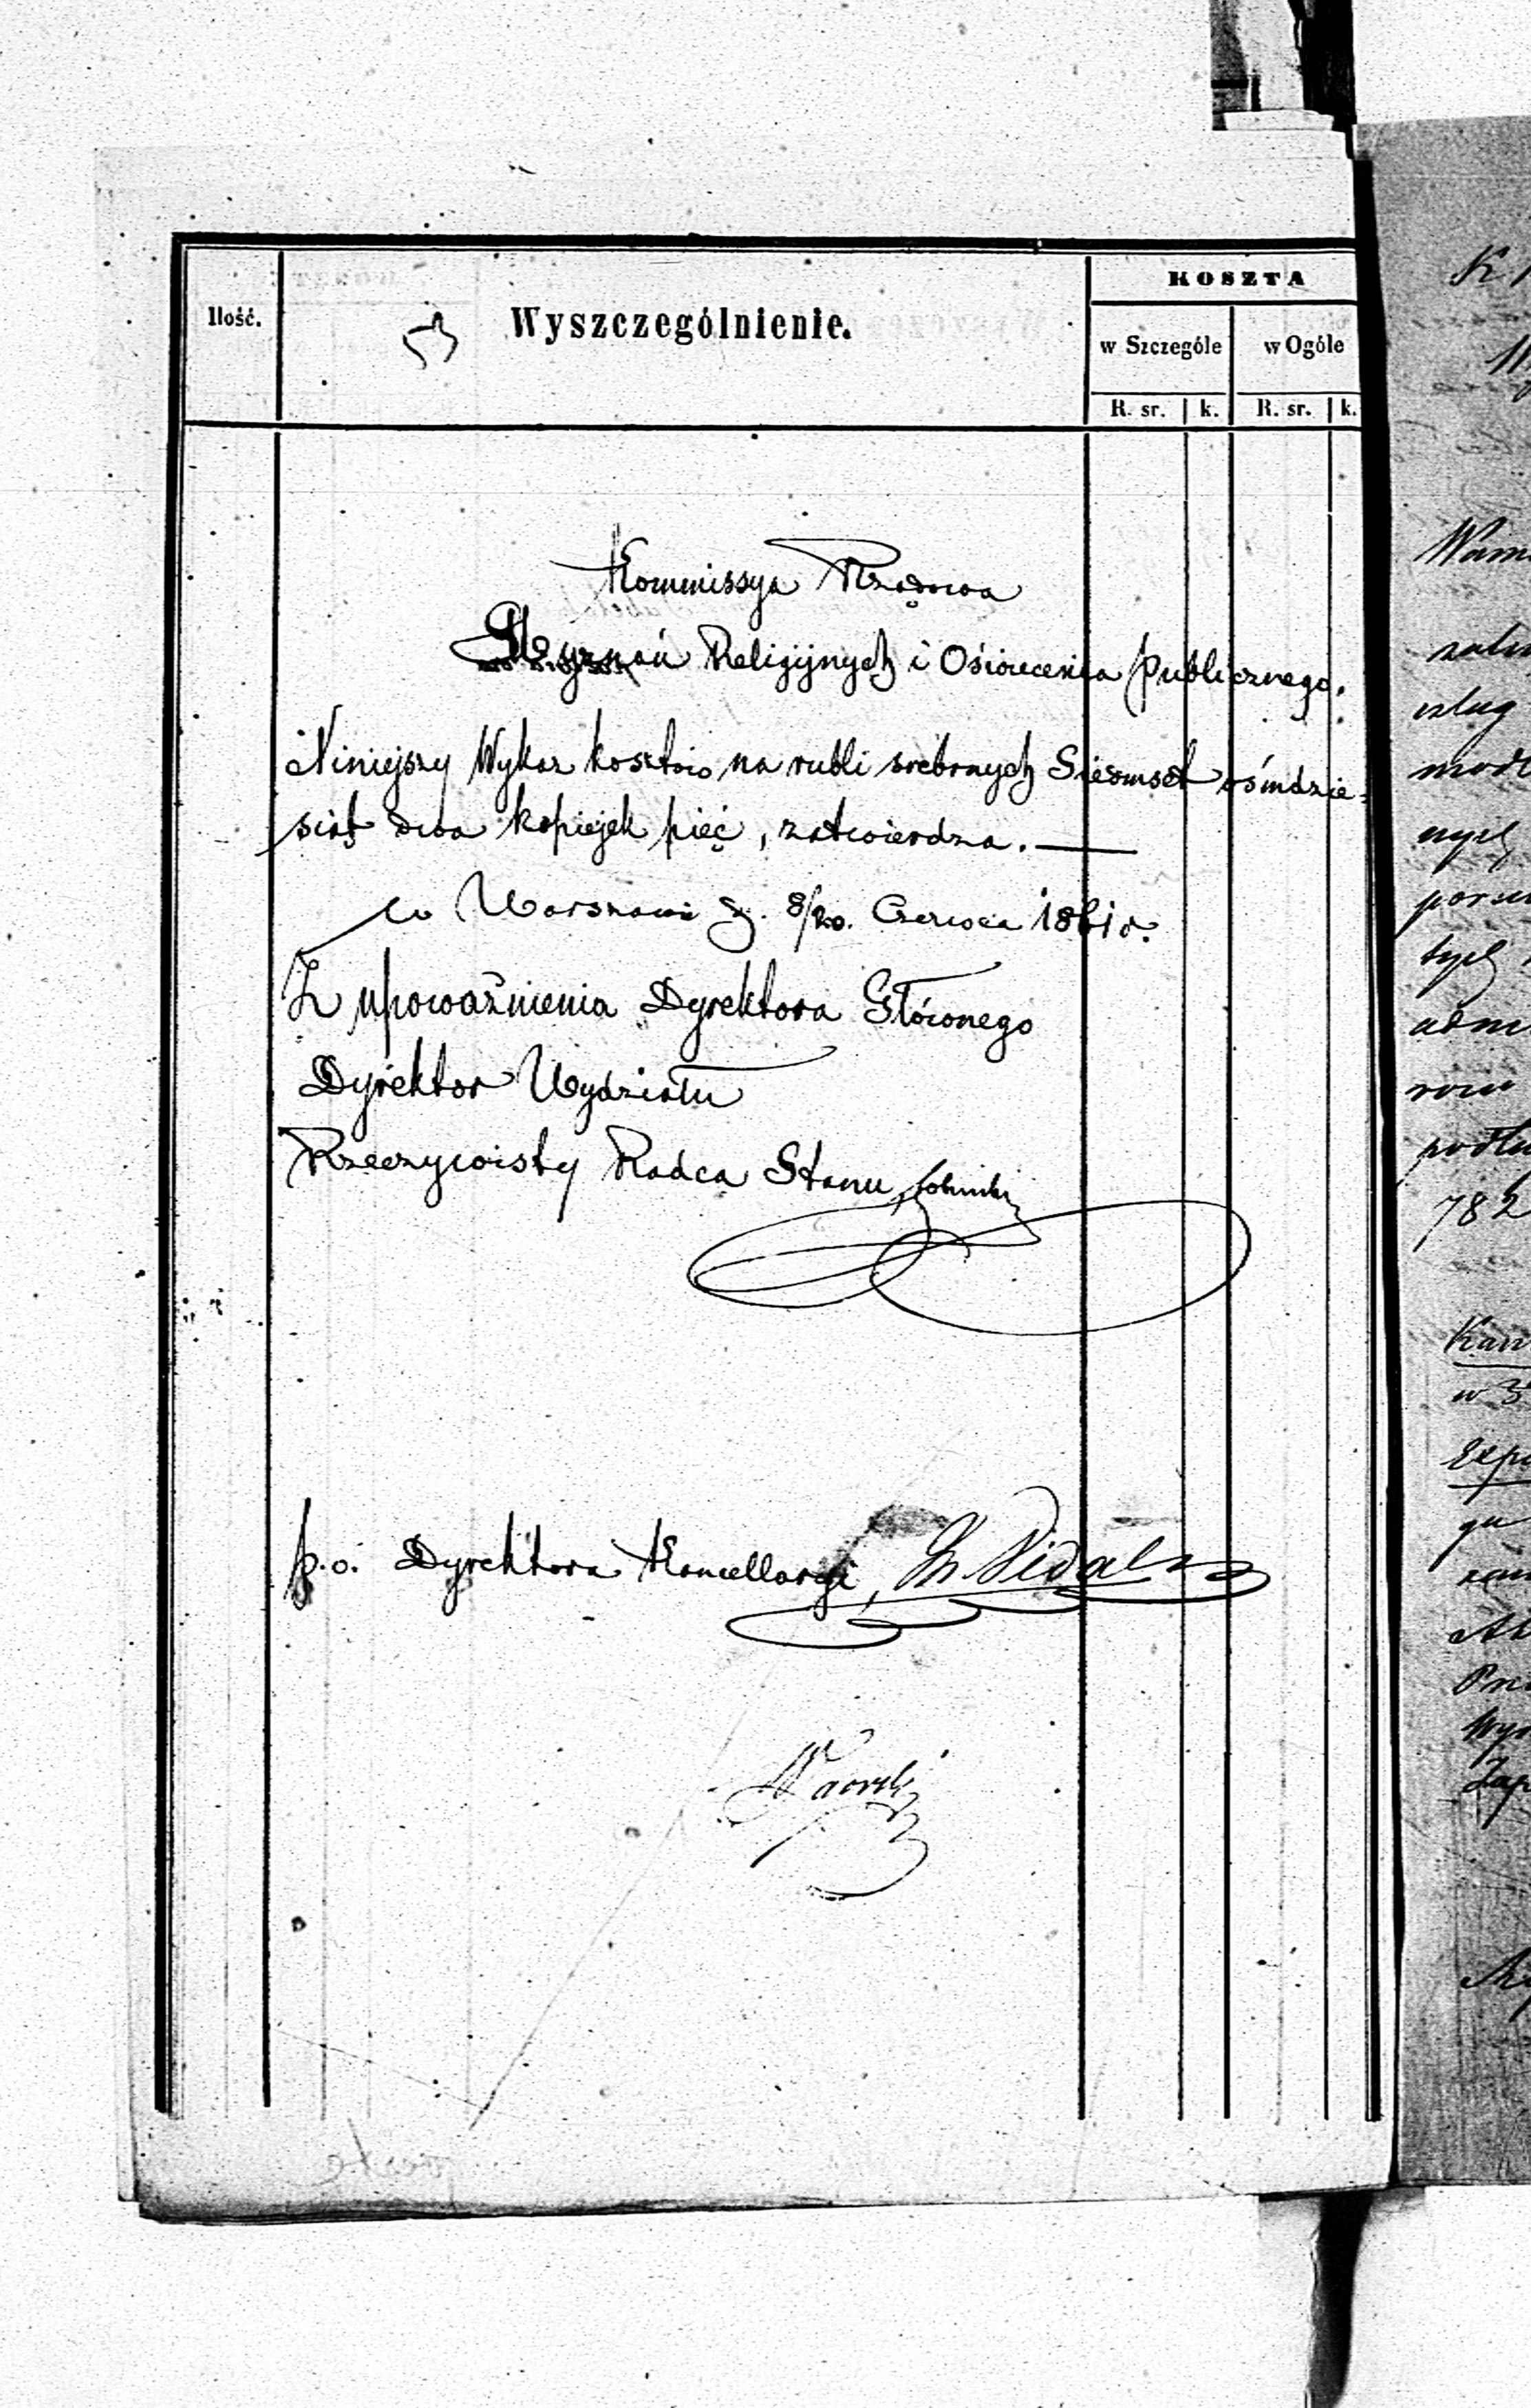 KOSZTA
Ilość.
Wyszczególnienie.
w Szczególe
w Ogóle
R. sr. k. R. sr. k.
Kommissya Rządowa
Wyznań Religijnych i Oświecenia Publicznego.
Niniejszy Wykaz kosztów na rubli srebrnych Siedmset ośmdzie=
siąt dwa kopiejek pięć, zatwierdza. —
w Warszawie d. 8/20. Czerwca 1861 r.
Z upoważnienia Dyrektora Głównego
Dyrektor Wydziału
Rzeczywisty Radca Stanu
p.o. Dyrektora Kancellaryi, Vidal
782